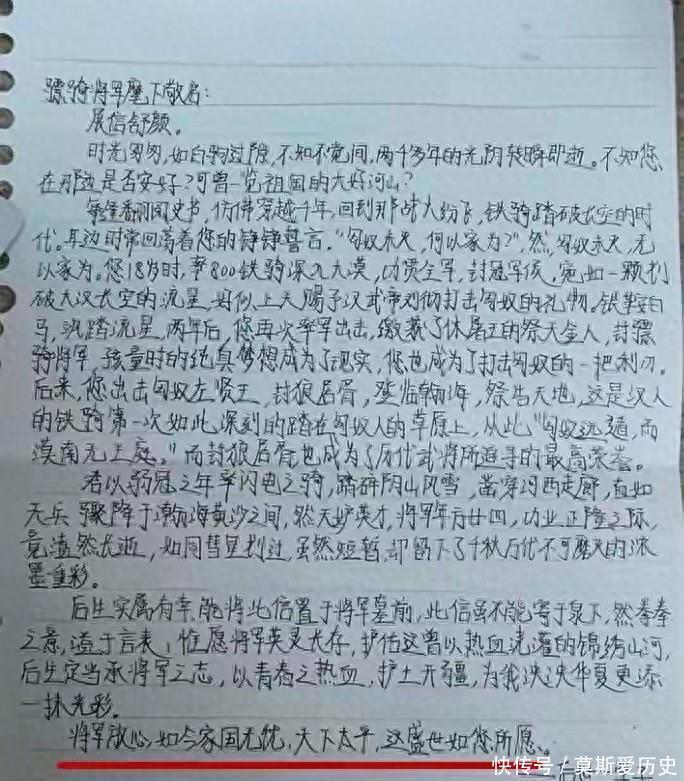 骠骑将军麾下敬启：
展信舒颜。
时光匆匆，如白驹过隙，不知不觉间，两千多年的光阴转瞬即逝。不知您
在那边是否安好？可曾一览祖国的大好河山？
每每翻阅史书，仿佛穿越千年，回到那战火纷飞，铁骑踏破长空的时
代。耳边时常回荡着您的铮铮誓言。“匈奴未灭，何以家为？”，然，匈奴未灭，无
以家为。您18岁时，率800铁骑深入大漠，功贯全军，封冠军侯，宛如一颗划
破大汉长空的流星，好似上天赐予汉武帝对彻打击匈奴的礼物。铁鞍白
马，飒踏流星，两年后，您再次率军出击，缴获了休屠王的祭天金人，封骠
骑将军，孩童时的纯真梦想成为了现实，您也成为了打击匈奴的一把利刃。
后来，您出击匈奴左贤王，封狼居胥，登临瀚海，祭告天地，这是汉人
的铁骑第一次如此深刻的踏在匈奴人的草原上，从此“匈奴远遁，而
漠南无王庭。”而封狼居胥也成为了历代武将所追寻的最高荣誉。
君以弱冠之年率闪电之骑，踏碎阴山风雪，凿穿河西走廊，直如
天兵骤降于瀚海黄沙之间，然天妒英才，将军年方廿四，功业正隆之际，
竟溘然长逝，如同彗星划过，虽然短暂，却留下了千秋万代不可磨灭的浓
墨重彩。
后生实属有幸，能将此信置于将军墓前，此信虽不能寄于泉下，然拳拳
之意，溢于言表，惟愿将军英灵长存，护佑这曾以热血浇灌的锦绣山河，
后生定当承将军之志，以青春之热血，护土开疆，为我泱泱华夏更添
一抹光彩。
将军放心，如今家国无忧，天下太平，这盛世如您所愿。
快传号／莫斯爱历史